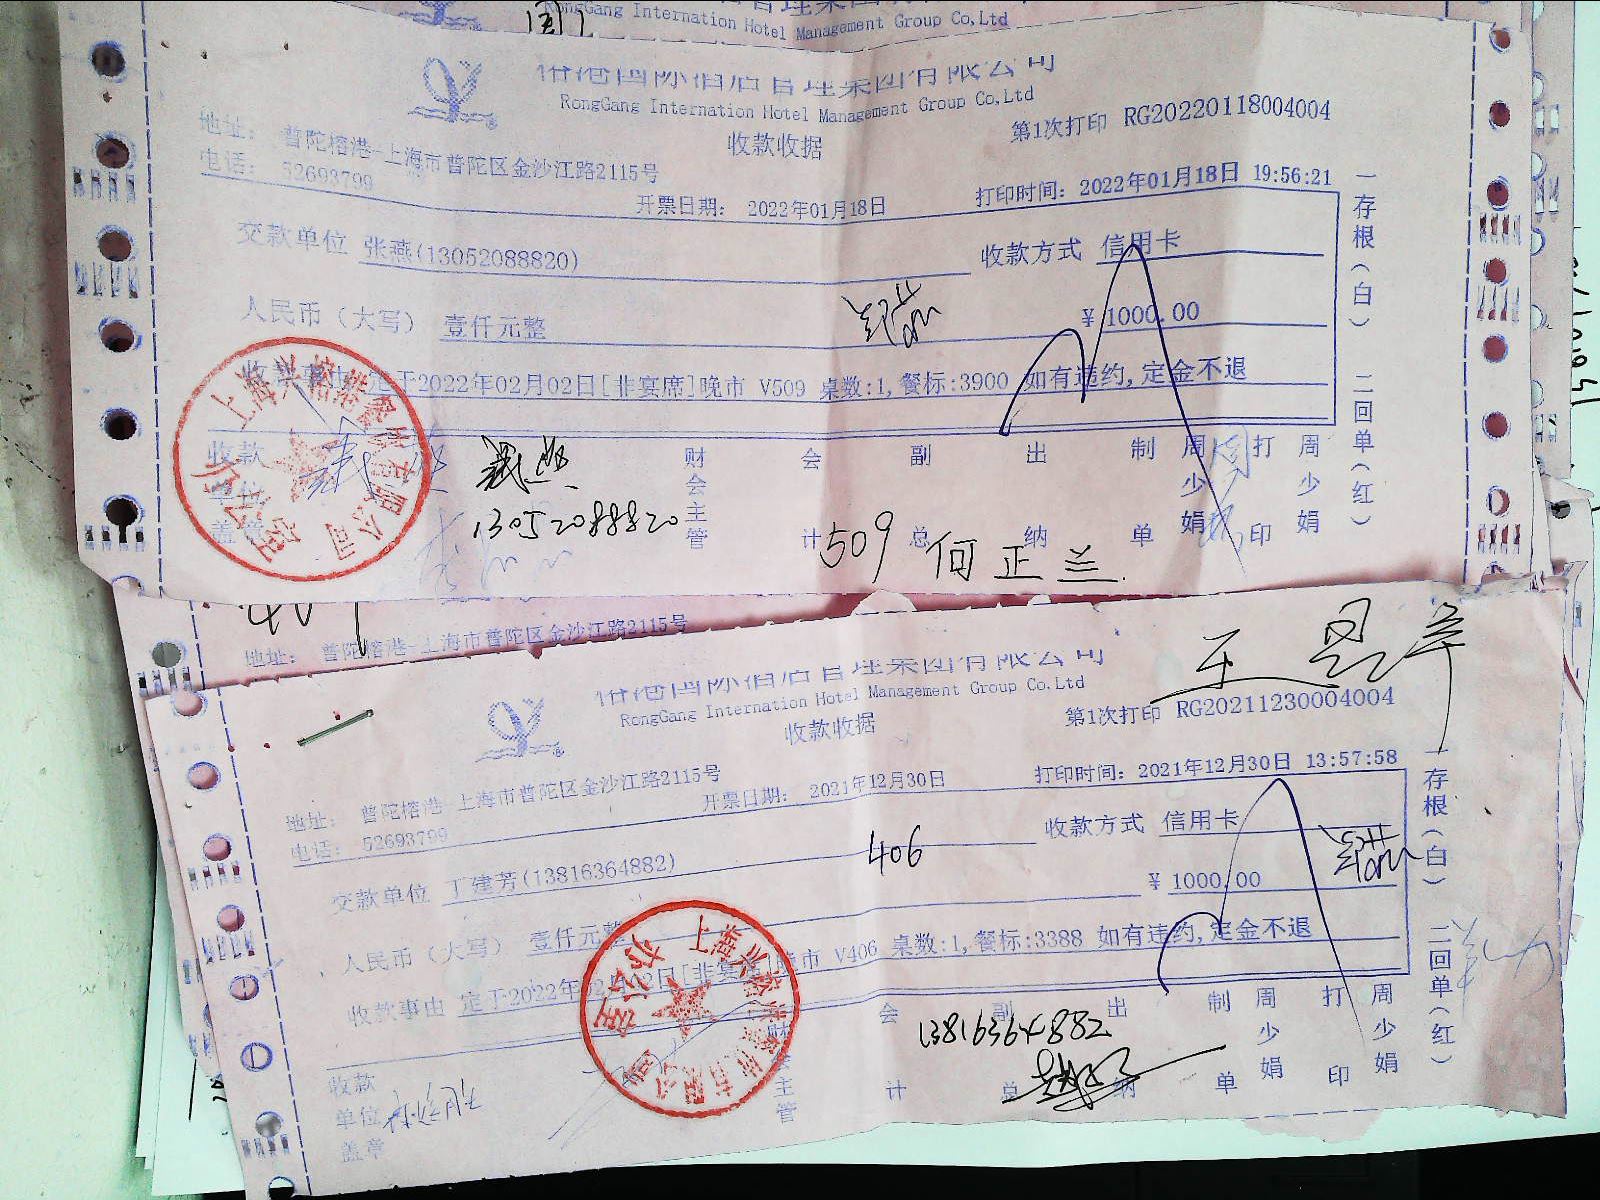 RongGang Internation Hotel Management Group Co,Ltd
榕港国际酒店管理集团有限公司
RongGang Internation Hotel Management Group Co,Ltd
收款收据
第1次打印 RG20220118004004
地址： 普陀榕港-上海市普陀区金沙江路2115号
电话： 52693799
开票日期： 2022年01月18日
打印时间：2022年01月18日 19:56:21
交款单位 张燕(13052088820)
收款方式 信用卡
人民币（大写） 壹仟元整
￥1000.00
收款事由 定于2022年02月02日[非宴席]晚市 V509 桌数:1,餐标:3900 如有违约,定金不退
收款单位盖章
财会主管
会计
副总
出纳
制单
周少娟
打印
周少娟
一存根（白） 二回单（红）
13052088820
509 何正兰
地址： 普陀榕港-上海市普陀区金沙江路2115号
榕港国际酒店管理集团有限公司
RongGang Internation Hotel Management Group Co,Ltd
收款收据
第1次打印 RG20211230004004
地址： 普陀榕港-上海市普陀区金沙江路2115号
电话： 52693799
开票日期： 2021年12月30日
打印时间：2021年12月30日 13:57:58
交款单位 丁建芳(13816364882)
406
收款方式 信用卡
人民币（大写） 壹仟元整
￥1000.00
收款事由 定于2022年02月02日[非宴席]晚市 V406 桌数:1,餐标:3388 如有违约,定金不退
收款单位盖章
财会主管
会计
副总
出纳
制单
周少娟
打印
周少娟
一存根（白） 二回单（红）
13816364882